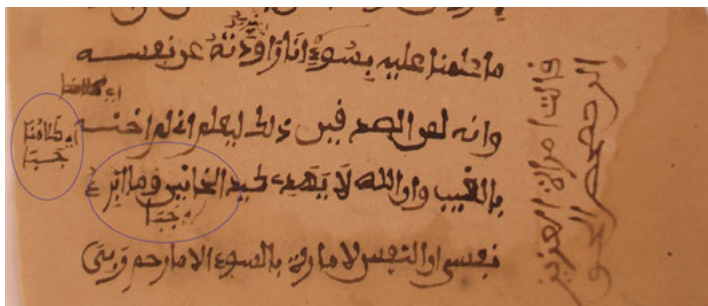 ما علمنا عليه بسوء انا راودته عن نفسه
وانه لمن الصدقين ذلك ليعلم اني لم اخنه
بالغيب وان الله لا يهدي كيد الخائنين وما ابرئ
جبا
نفسي ان النفس لامارة بالسوء الا ما رحم ربي
قالت امراة العزيز
الن حصحص الحق
اي كلامنا
جبا